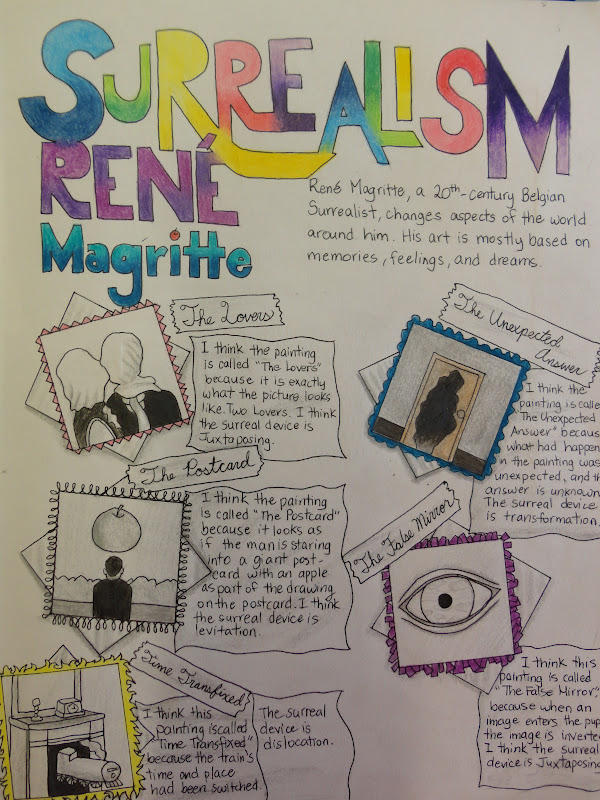 SURREALISM
RENÉ
Magritte
René Magritte, a 20th-century Belgian
Surrealist, changes aspects of the world
around him. His art is mostly based on
memories, feelings, and dreams.
The Lovers
I think the painting
is called "The Lovers"
because it is exactly
what the picture looks
like. Two Lovers. I think
the surreal device is
Juxtaposing.
The Unexpected
Answer
I think the
painting is calle
The Unexpected
Answer" becaus
what had happen
in the painting was
unexpected, and th
answer is unknown
The surreal device
is transformation.
The Postcard
I think the painting
is called "The Postcard"
because it looks as
if the man is staring
into a giant post-
card with an apple
as part of the drawing
on the postcard. I think
the surreal device is
levitation.
The False Mirror
I think this
painting is called
"The False Mirror",
because when an
image enters the pup
the image is inverte
I think the surreal
device is Juxtaposing
Time Transfixed
I think this
painting is called
"Time Transfixed"
because the train's
time and place
had been switched.
The surreal
device is
dislocation.